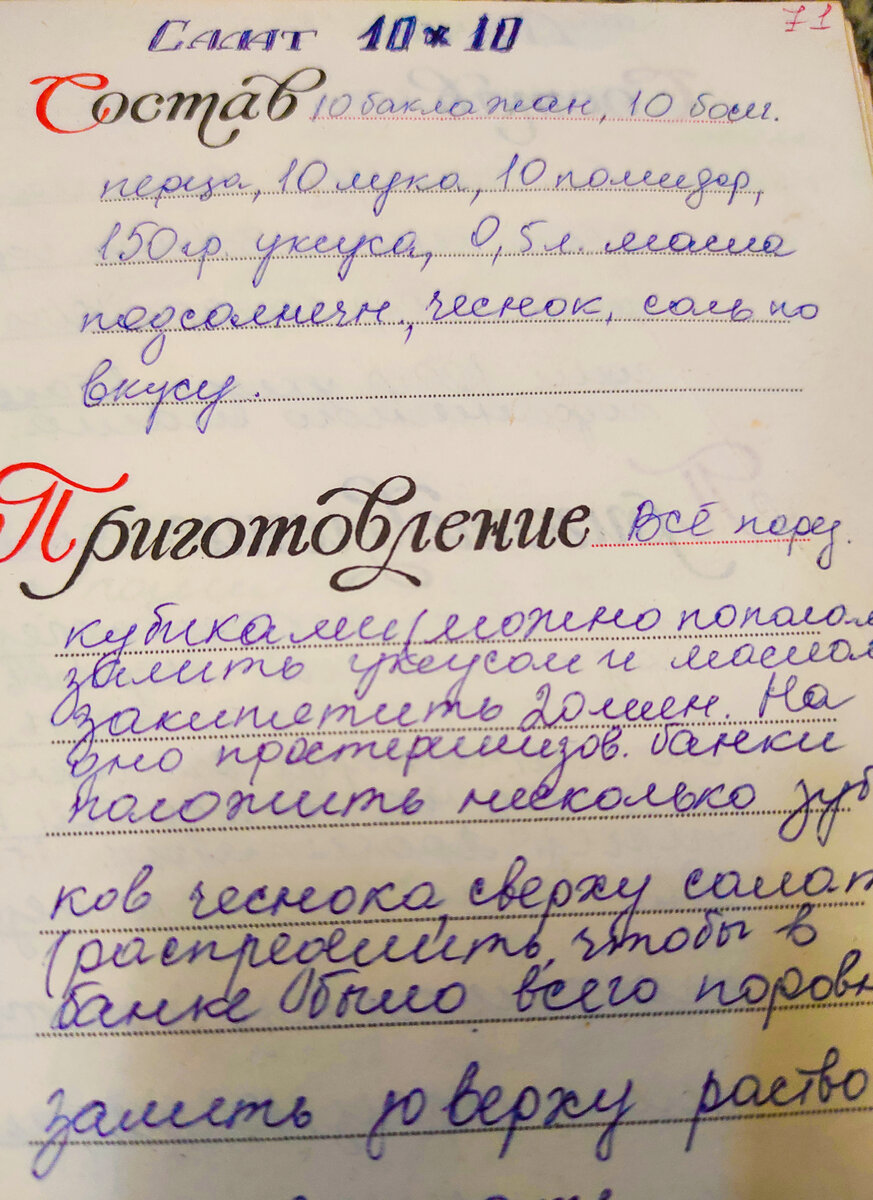 71
Салат 10 x 10
Состав 10 баклажан, 10 болг.
перца, 10 лука, 10 помидор,
150 гр. уксуса, 0,5 л. масла
подсолнечн., чеснок, соль по
вкусу.
Приготовление Всё порез.
кубиками (можно пополам
залить уксусом и маслом
закипетить 20 мин. На
дно простерилизов. банки
положить несколько зуб
ков чеснока, сверху салат
(распределить, чтобы в
банке было всего поровн
залить доверху раство